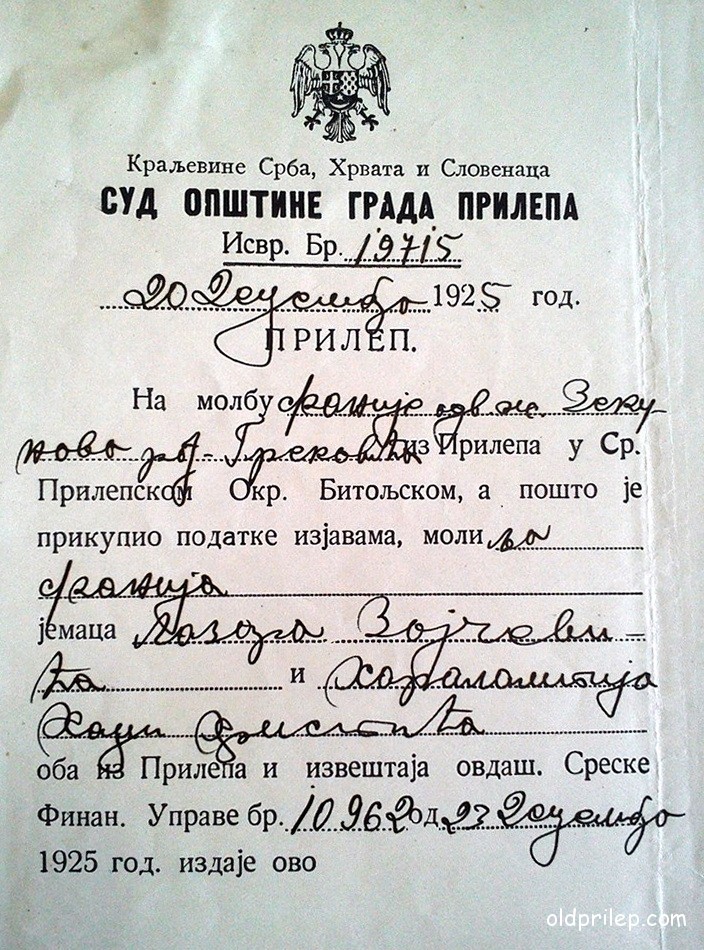 Краљевине Срба, Хрвата и Словенаца
СУД ОПШТИНЕ ГРАДА ПРИЛЕПА
Исвр. Бр. 19715
20 Децембра 1925 год.
ПРИЛЕП.
На молбу
из Прилепа у Ср.
Прилепском Окр. Битољском, а пошто је
прикупио податке изјавама, моли
јемаца Лазара
и Харалампија
Хаџи
оба из Прилепа и извештаја овдаш. Среске
Финан. Управе бр. 10962 од 23 Децембра
1925 год. издаје ово
oldprilep.com